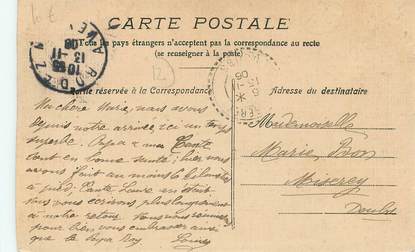 CARTE POSTALE
Tous les pays étrangers n'acceptent pas la correspondance au recto
(se renseigner à la poste)
Partie réservée à la Correspondance
Adresse du destinataire
Ma chère Marie, nous avons
depuis notre arrivée, ici un temps
superbe. Papa & ma Tante
sont en bonne santé; hier nous
avons fait au moins 6 kilomètres
à pied, Tante
vous écrirons plus longuement
à notre retour.
pour bien vous embrasser ainsi
que le Papa
Louise
Mademoiselle
Marie
Miserey
Doubs
RODEZ
13 -11
06